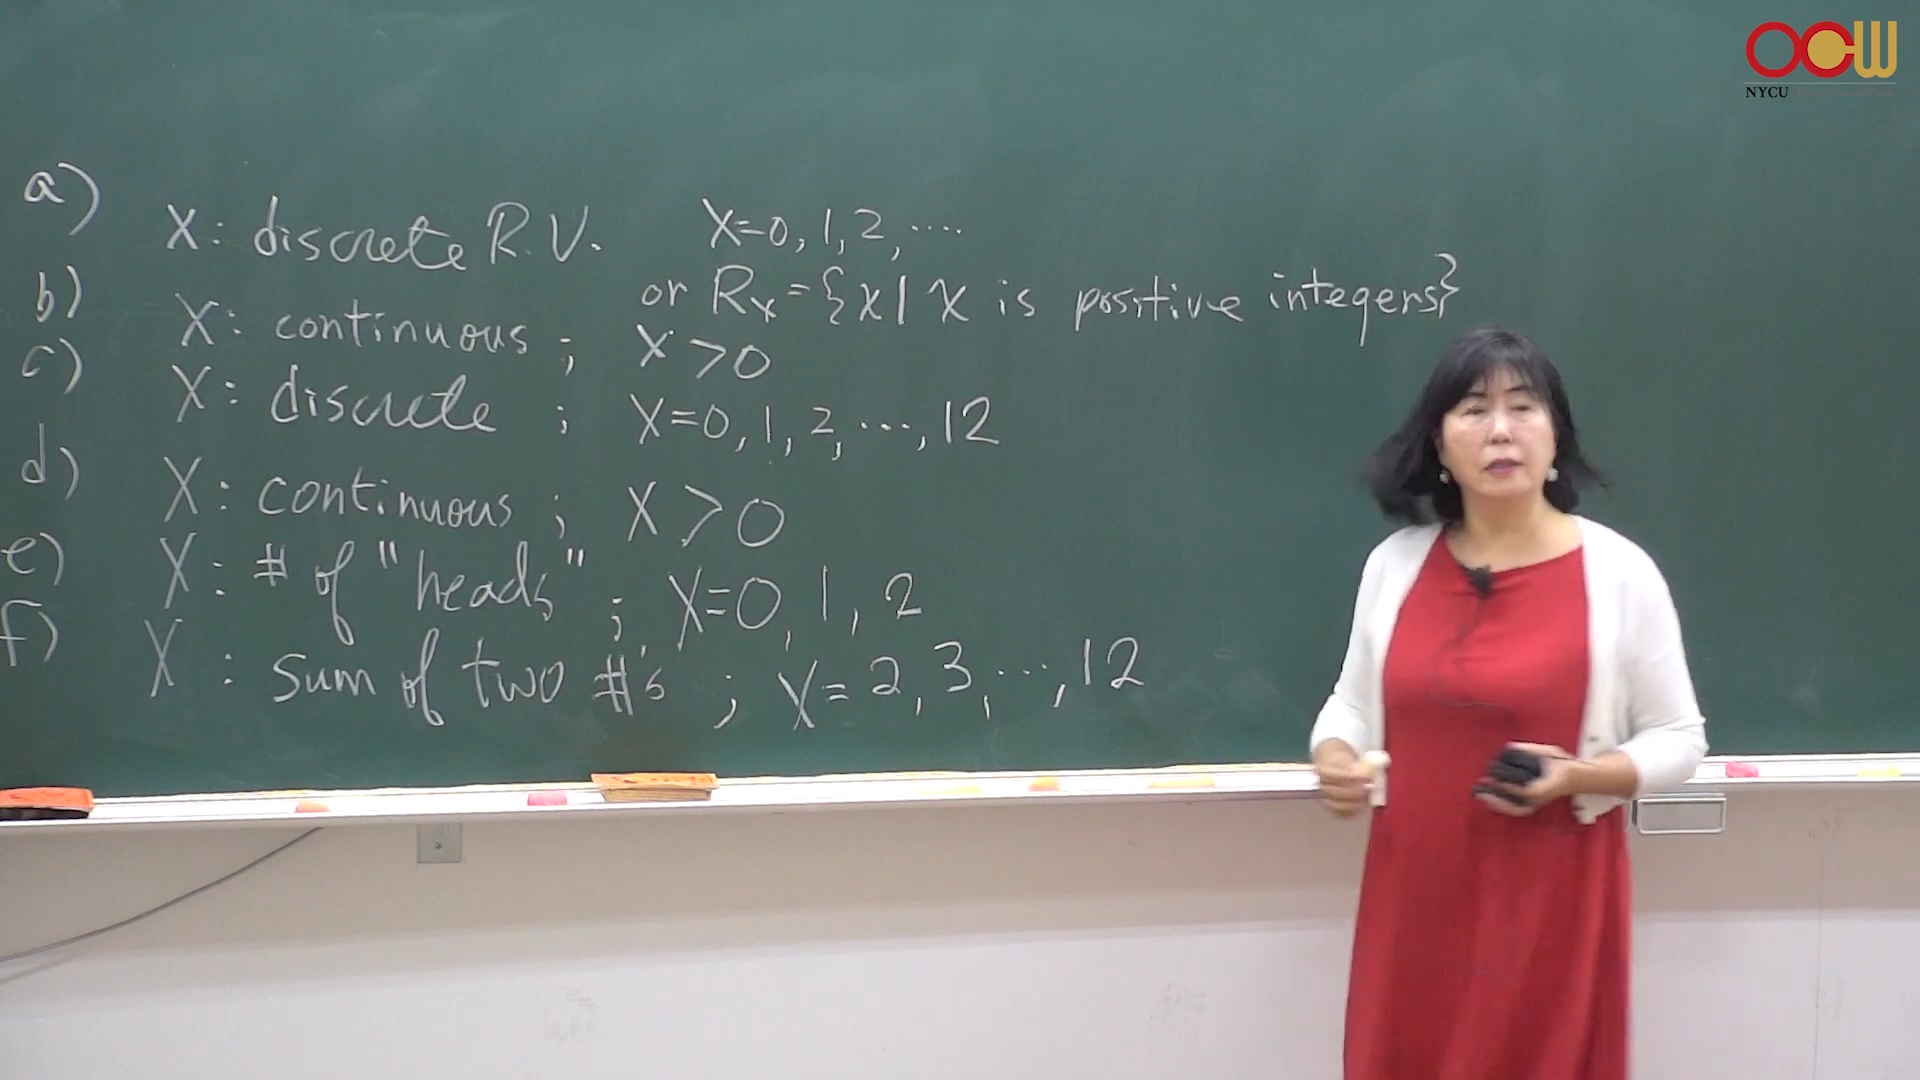 OCW
NYCU
a) X: discrete R.V. X=0, 1, 2, ....
or Rx = {x | x is positive integers}
b) X: continuous ; X > 0
c) X: discrete ; X=0, 1, 2, ..., 12
d) X: continuous ; X > 0
e) X: # of "heads" ; X=0, 1, 2
f) X : sum of two #'s ; X= 2, 3, ..., 12